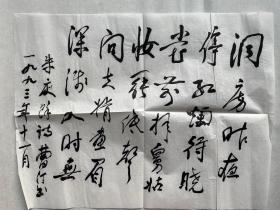 洞房昨夜
停红烛待晓
堂前拜舅姑
妆罢低声
问夫婿画眉
深浅入时无
朱庆馀诗 曹 书
一九九三年十一月